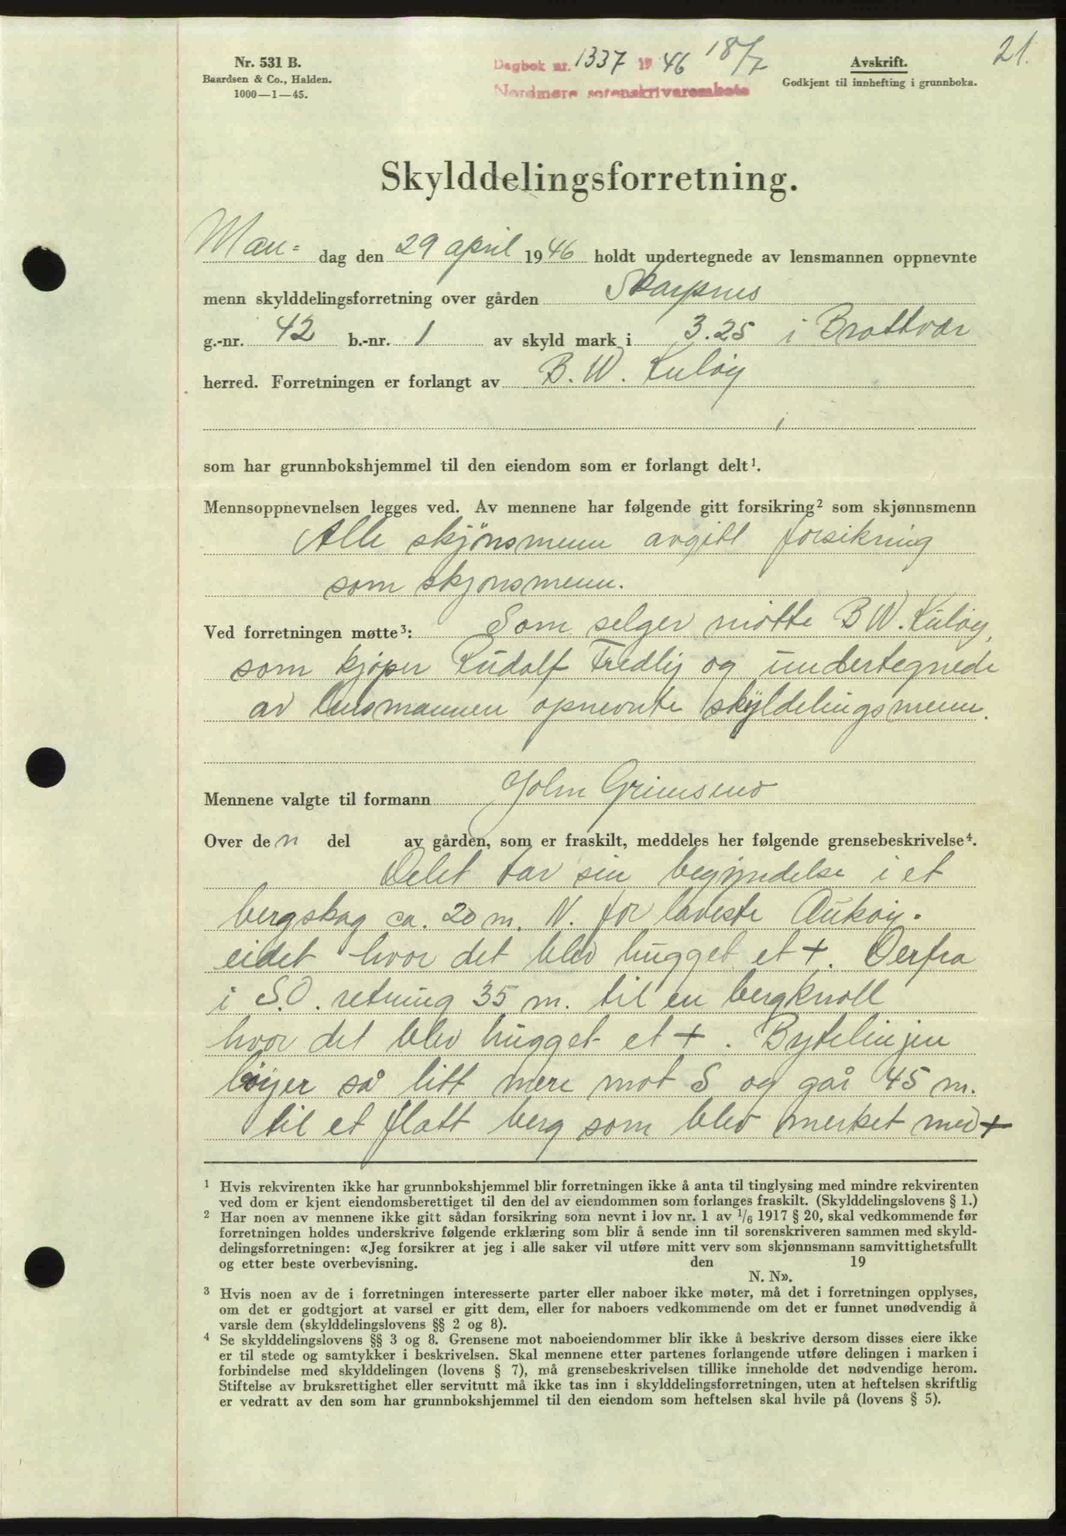 Nr. 531 B.
Baardsen & Co., Halden.
1000—1—45.
Dagbok nr. 1337 19 46 18/7
Nordmøre sorenskriverembete
Avskrift.
Godkjent til innhefting i grunnboka.
21.
Skylddelingsforretning.
Man= dag den 29 april 1946 holdt undertegnede av lensmannen oppnevnte
menn skylddelingsforretning over gården Skarpnes
g.-nr. 42 b.-nr. 1 av skyld mark i 3.25 i Brattvær
herred. Forretningen er forlangt av B. W. Kuløy
som har grunnbokshjemmel til den eiendom som er forlangt delt¹.
Mennsoppnevnelsen legges ved. Av mennene har følgende gitt forsikring² som skjønnsmenn
Alle skjönsmenn avgitt forsikring
som skjønsmenn.
Ved forretningen møtte³: Som selger møtte B W. Kuløy,
som kjøper Rudolf Fredly og undertegnede
av lensmannen opnevnte skyldelingsmenn.
Mennene valgte til formann John Grimsmo
Over den del av gården, som er fraskilt, meddeles her følgende grensebeskrivelse⁴.
Delet tar sin begyndelse i et
bergskag ca. 20 m. N. for laveste Aukøy-
eidet hvor det blev hugget et +. Derfra
i S.O. retning 35 m. til en bergknoll
hvor det blev hugget et +. Bytelinjen
bøyer så litt mere mot S og går 45 m.
til et flatt berg som blev merket med +
¹ Hvis rekvirenten ikke har grunnbokshjemmel blir forretningen ikke å anta til tinglysing med mindre rekvirenten
ved dom er kjent eiendomsberettiget til den del av eiendommen som forlanges fraskilt. (Skylddelingslovens § 1.)
² Har noen av mennene ikke gitt sådan forsikring som nevnt i lov nr. 1 av 1/6 1917 § 20, skal vedkommende før
forretningen holdes underskrive følgende erklæring som blir å sende inn til sorenskriveren sammen med skyld-
delingsforretningen: «Jeg forsikrer at jeg i alle saker vil utføre mitt verv som skjønnsmann samvittighetsfullt
og etter beste overbevisning. den 19
N. N».
³ Hvis noen av de i forretningen interesserte parter eller naboer ikke møter, må det i forretningen opplyses,
om det er godtgjort at varsel er gitt dem, eller for naboers vedkommende om det er funnet unødvendig å
varsle dem (skylddelingslovens §§ 2 og 8).
⁴ Se skylddelingslovens §§ 3 og 8. Grensene mot naboeiendommer blir ikke å beskrive dersom disses eiere ikke
er til stede og samtykker i beskrivelsen. Skal mennene etter partenes forlangende utføre delingen i marken i
forbindelse med skylddelingen (lovens § 7), må grensebeskrivelsen tillike inneholde det nødvendige herom.
Stiftelse av bruksrettighet eller servitutt må ikke tas inn i skylddelingsforretningen, uten at heftelsen skriftlig
er vedratt av den som har grunnbokshjemmel til den eiendom som heftelsen skal hvile på (lovens § 5).